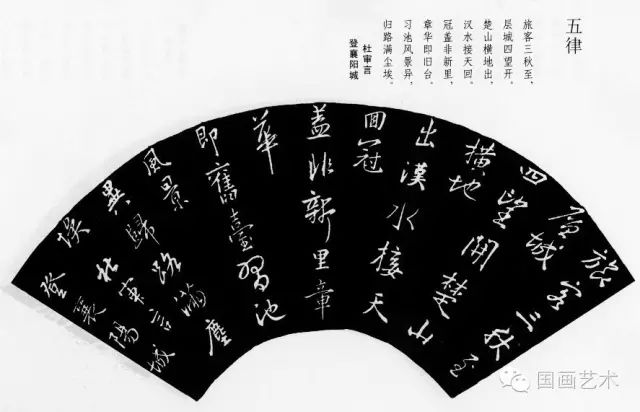 五律
旅客三秋至，
层城四望开。
楚山横地出，
汉水接天回。
冠盖非新里，
章华即旧台。
习池风景异，
归路满尘埃。
杜审言
登襄阳城
旅客三秋至
層城
四望開楚山
横地
出漢水接天
回冠
蓋非新里章
華
即舊臺習池
風景
異歸路滿塵
埃杜審言
登襄陽城
国画艺术